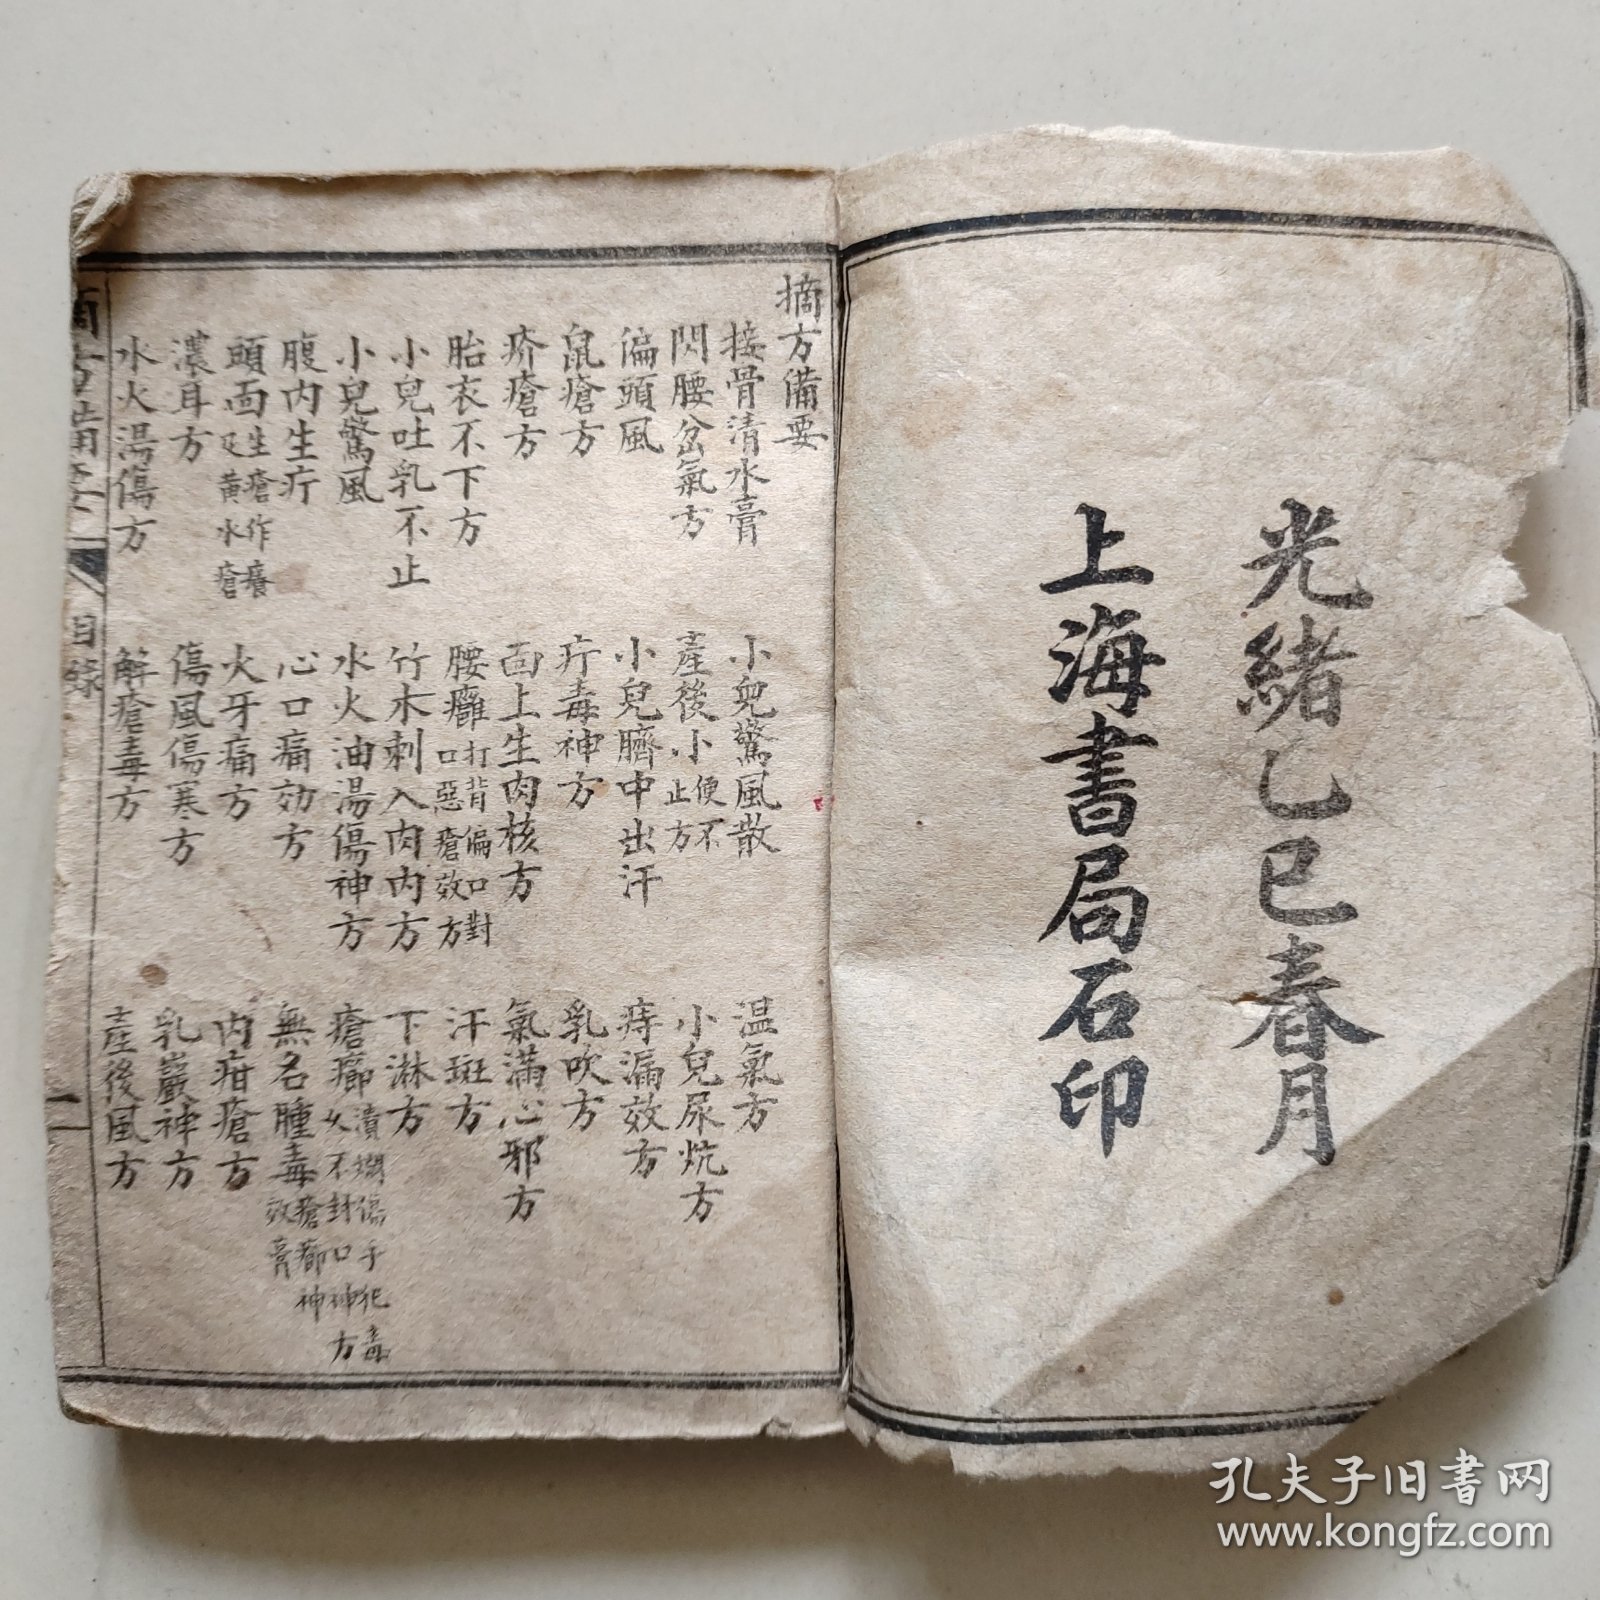 光緒乙巳春月
上海書局石印
摘方備要
接骨清水膏
小兒驚風散
温氣方
閃腰岔氣方
產後小便不止方
小兒尿炕方
偏頭風
小兒臍中出汗
痔漏效方
鼠瘡方
疔毒神方
乳吹方
疥瘡方
面上生肉核方
氣滿心邪方
胎衣不下方
腰癰打背偏口對口惡瘡效方
汗斑方
小兒吐乳不止
竹木刺入肉内方
下淋方
小兒驚風
水火油湯傷神方
瘡癤潰爛傷手犯毒久不封口神方
腹内生疔
心口痛効方
無名腫毒瘡癤神效膏
頭面生瘡作癢及黄水瘡
火牙痛方
内疳瘡方
濃耳方
傷風傷寒方
乳巖神方
水火湯傷方
解瘡毒方
產後風方
目錄
二
孔夫子旧书网
www.kongfz.com